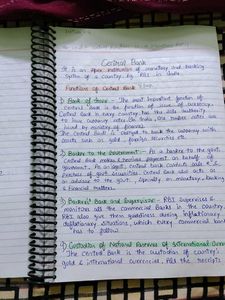 Central Bank
It is an Apex institution of monetary and banking
system of a country. eg RBI in India
Functions of Central Bank
1) Bank of Issue - The most important function of
Central Bank is the function of issue of currency.
Central Bank in every country has the sole authority
to issue currency notes. In India, one rupee notes are
issued by ministry of finance.
The Central Bank is obliged to back the currency with
assets such as gold, foreign securities etc
2) Banker to the Government - As a banker to the govt.
Central Bank makes & receives payment on behalf of
government. As an agent, central bank carries sale &
purchase of govt securities. Central Bank also acts as
an advisor to the govt. specially on monetary, banking
& financial matters.
3) Bankers' Bank and Supervisor - RBI Supervises &
monitors all the commercial Banks in the Country.
RBI also give them guidelines during inflationary &
deflationary situations, which every commercial bank
has to follow
4) Custodian of National Reserves of International
The Central Bank is the custodian of country's
gold & international currencies. All the receipts